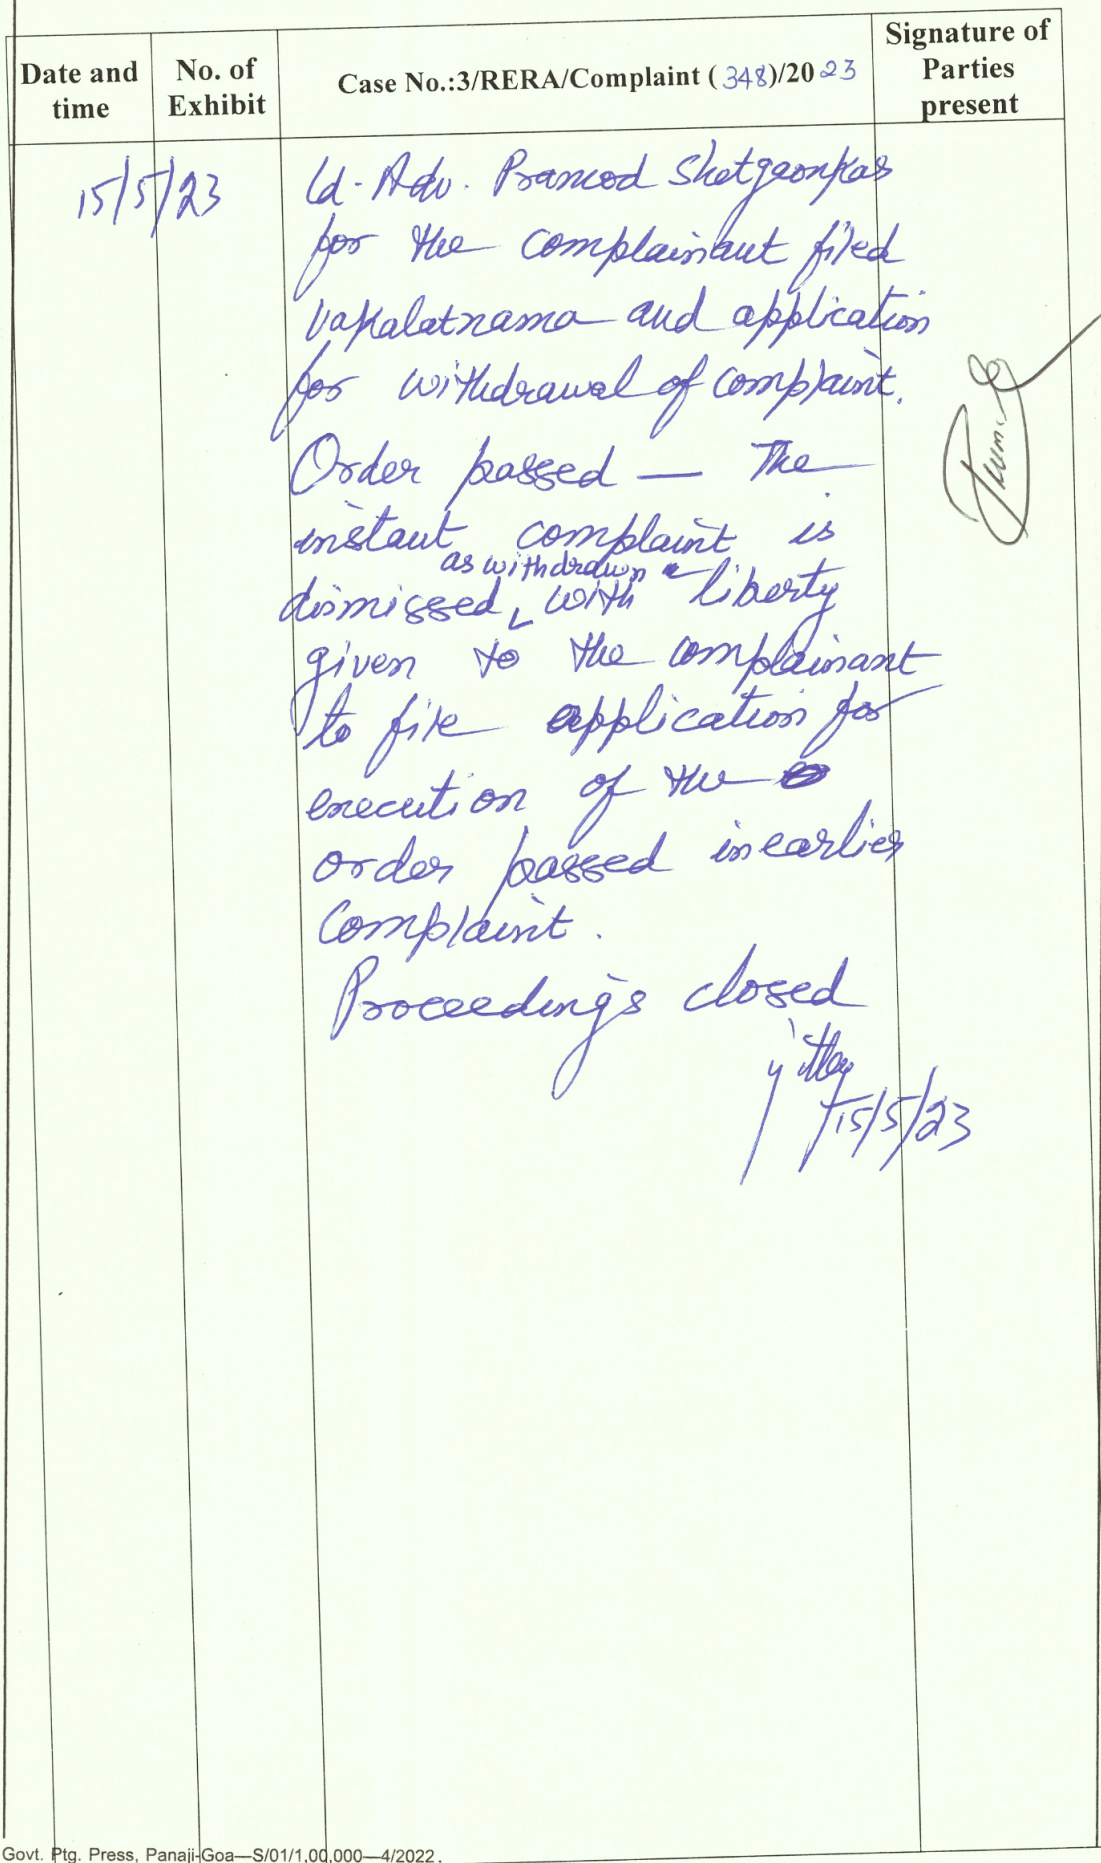 Date and time
No. of Exhibit
Case No.:3/RERA/Complaint (348)/2023
Signature of Parties present
15/5/23
Ld. Adv. Pramod Shetgaonkar
for the complainant filed
vakalatnama and application
for withdrawal of complaint.
Order passed — The
instant complaint is
as withdrawn
dismissed, with liberty
given to the complainant
to file application for
execution of the
order passed in earlier
Complaint.
Proceedings closed
15/5/23
Govt. Ptg. Press, Panaji-Goa—S/01/1,00,000—4/2022.